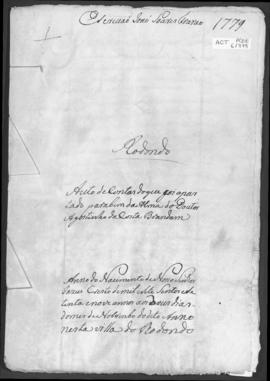 Escrivão José Soares
1779
ACT
Redondo
Auto de Contas do que foi apar
tado para bem da Alma do Doutor
Agostinho da Costa Brandam
Anno do Nascimento de Nosso Senhor
Jezus Cristo de mil e sete Sentos e se
tinta e nove annos aos dous dias
do mes de Novembro do dito Anno
nesta villa do Redondo